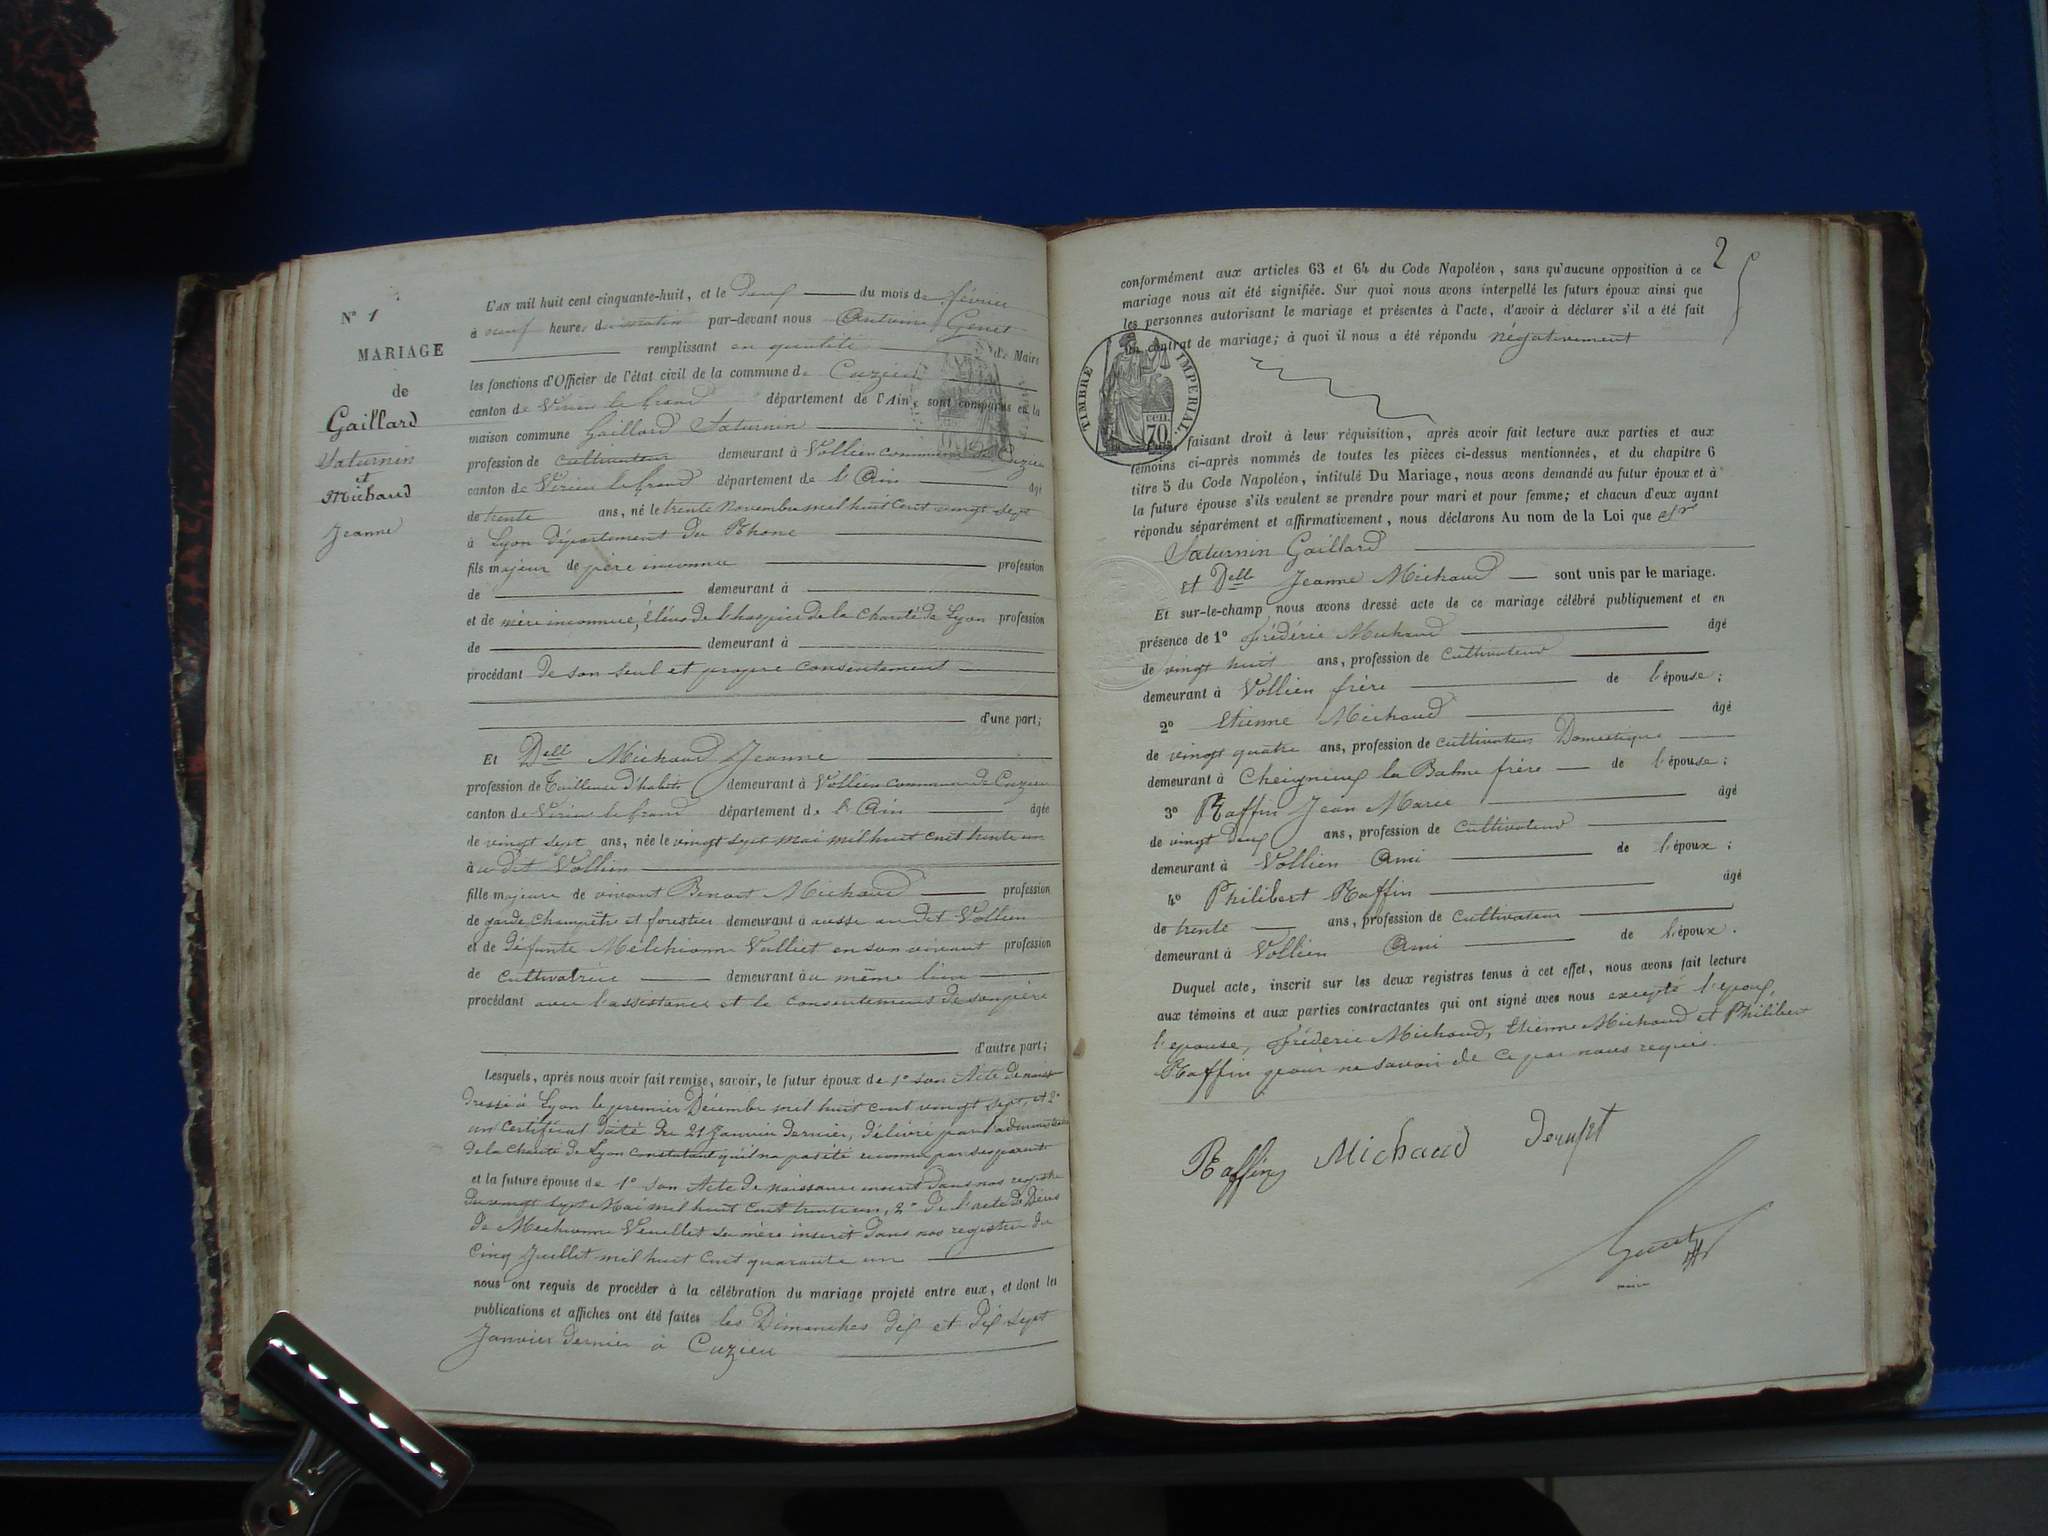 N° 1
MARIAGE
de
Gaillard
Saturnin
et
Michaud
Jeanne
L'AN mil huit cent cinquante-huit, et le Deux du mois de février
à neuf heures du matin par-devant nous Antoine Genet
remplissant en qualité de Maire
les fonctions d'Officier de l'état civil de la commune de Cuzieu
canton de Virieu le Grand département de l'Ain, sont comparus en la
maison commune Gaillard Saturnin
profession de cultivateur demeurant à Vollien commune de Cuzieu
canton de Virieu le Grand département de l'Ain âgé
de trente ans, né le trente Novembre mil huit cent vingt sept
à Lyon département du Rhone
fils majeur de père inconnu profession
de demeurant à
et de mère inconnue, élève de l'hospice de la Charité de Lyon profession
de demeurant à
procédant de son seul et propre consentement
d'une part;
Et Delle Michaud Jeanne
profession de Tailleuse d'habits demeurant à Vollien commune de Cuzieu
canton de Virieu le Grand département de l'Ain âgée
de vingt sept ans, née le vingt sept Mai mil huit cent trente un
à u dit Vollien
fille majeure de vivant Benoit Michaud profession
de garde champêtre et forestier demeurant à aussi au dit Vollien
et de défunte Melchionne Vulliet en son vivant profession
de cultivatrice demeurant à u même lieu
procédant avec l'assistance et le consentement de son père
d'autre part;
Lesquels, après nous avoir fait remise, savoir, le futur époux de 1° son Acte de naiss
dressé à Lyon le premier Décembre mil huit cent vingt sept, et 2°
un certificat daté du 21 Janvier dernier, délivré par l'administration
de la Charité de Lyon constatant qu'il n'a pas été reconnu par ses parents
et la future épouse de 1° son Acte de naissance inscrit dans nos registres
du vingt sept Mai mil huit cent trente un, 2° de l'acte de Décès
de Mechionne Veuillet sa mère inscrit dans nos registres du
cinq Juillet mil huit cent quarante un
nous ont requis de procéder à la célébration du mariage projeté entre eux, et dont les
publications et affiches ont été faites les Dimanches dix et dix sept
Janvier dernier à Cuzieu
2
conformément aux articles 63 et 64 du Code Napoléon, sans qu'aucune opposition à ce
mariage nous ait été signifiée. Sur quoi nous avons interpellé les futurs époux ainsi que
les personnes autorisant le mariage et présentes à l'acte, d'avoir à déclarer s'il a été fait
un contrat de mariage; à quoi il nous a été répondu négativement
TIMBRE IMPERIAL
cen.
70
faisant droit à leur réquisition, après avoir fait lecture aux parties et aux
témoins ci-après nommés de toutes les pièces ci-dessus mentionnées, et du chapitre 6
titre 5 du Code Napoléon, intitulé Du Mariage, nous avons demandé au futur époux et à
la future épouse s'ils veulent se prendre pour mari et pour femme; et chacun d'eux ayant
répondu séparément et affirmativement, nous déclarons Au nom de la Loi que Sr
Saturnin Gaillard
et Delle Jeanne Michaud sont unis par le mariage.
Et sur-le-champ nous avons dressé acte de ce mariage célébré publiquement et en
présence de 1° Frédéric Michaud âgé
de vingt huit ans, profession de Cultivateur
demeurant à Vollien frère de l'épouse;
2° Etienne Michaud âgé
de vingt quatre ans, profession de cultivateur Domestique
demeurant à Cheignieux la Balme frère de l'épouse;
3° Raffin Jean Marie âgé
de vingt deux ans, profession de cultivateur
demeurant à Vollien Ami de l'époux;
4° Philibert Raffin âgé
de trente ans, profession de Cultivateur
demeurant à Vollien Ami de l'époux.
Duquel acte, inscrit sur les deux registres tenus à cet effet, nous avons fait lecture
aux témoins et aux parties contractantes qui ont signé avec nous excepté l'époux,
l'épouse, Frédéric Michaud, Etienne Michaud et Philibert
Raffin pour ne savoir de ce par nous requis.
Raffin Michaud
Genet
maire